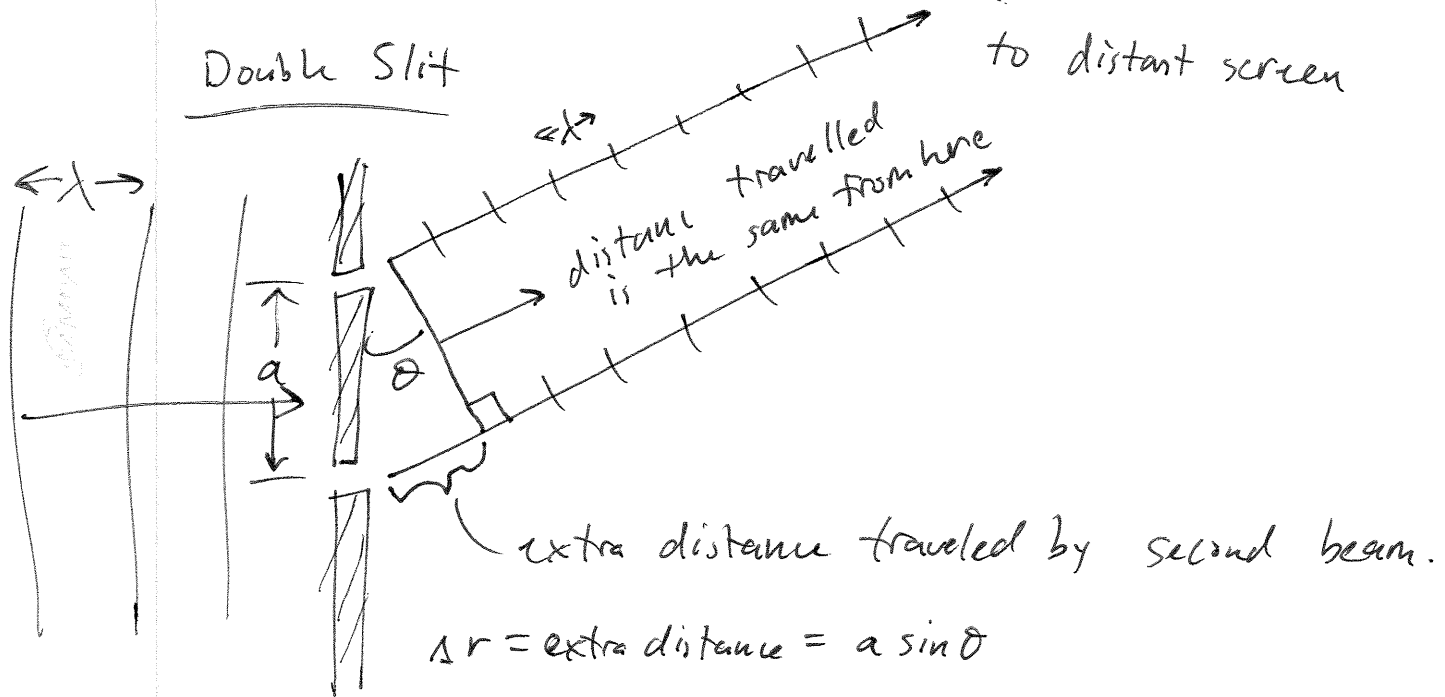 Double Slit
to distant screen
λ
λ
distance travelled
is the same from here
a
θ
extra distance traveled by second beam.
Δr = extra distance = a sinθ